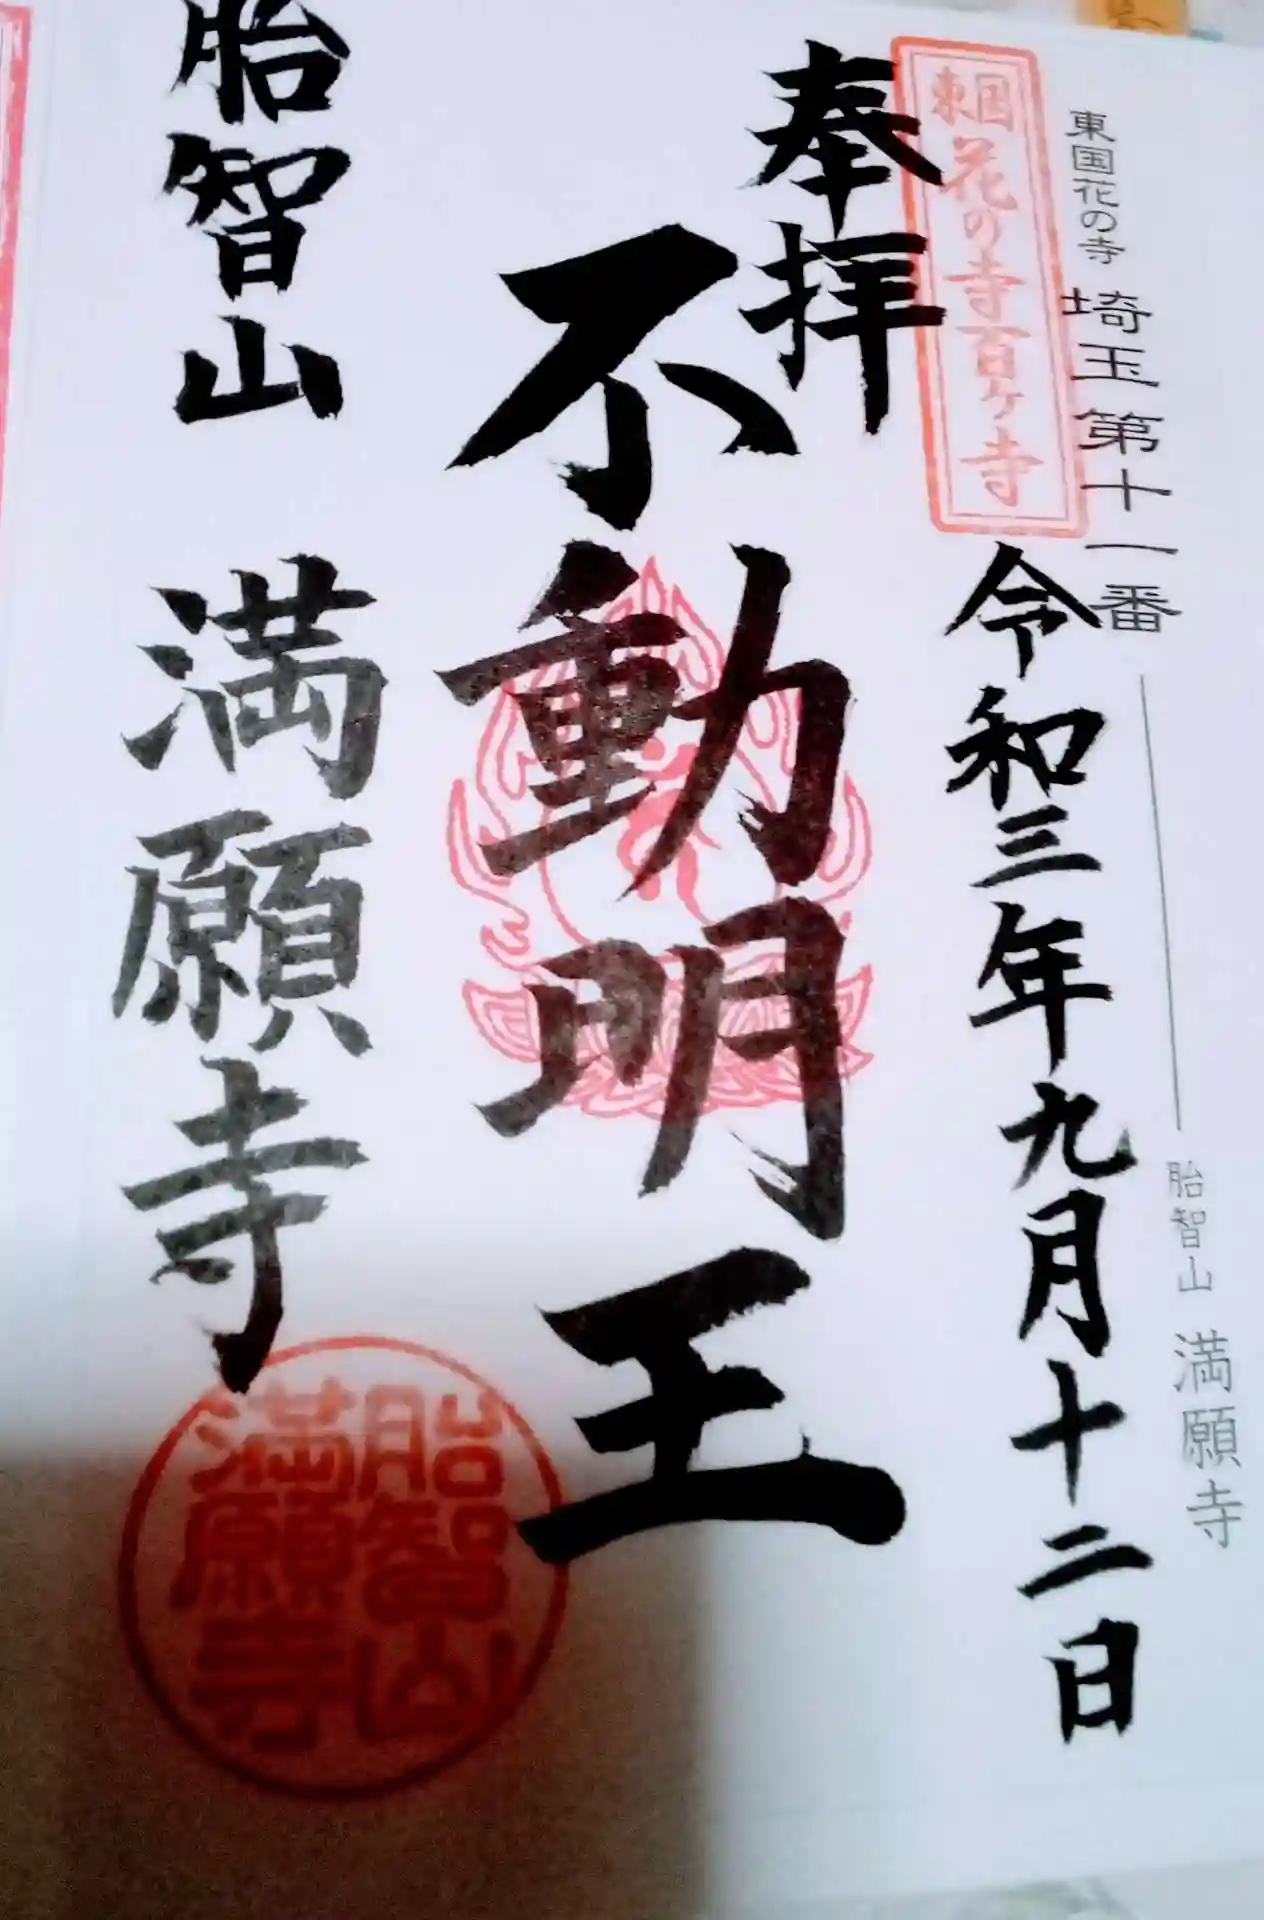 東国花の寺 埼玉第十一番
胎智山 満願寺
東国花の寺百ヶ寺
奉拝
令和三年九月十二日
不動明王
胎智山 満願寺
胎智山
満願寺